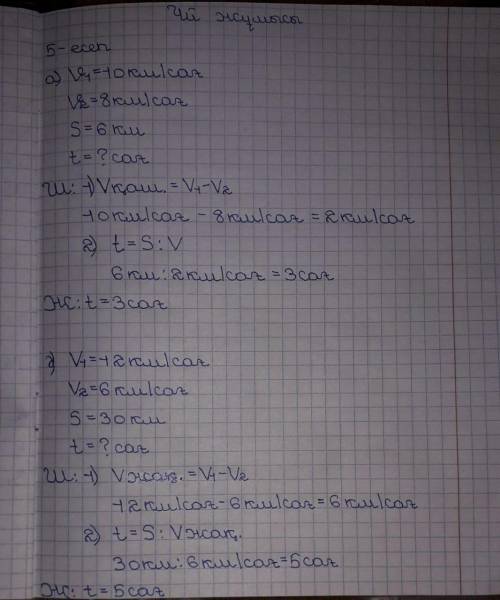 Үй жұмысы
5-есеп
а) V1=10км/сағ
V2=8км/сағ
S=6км
t=?сағ
Ш: 1) Vқаш.=V1-V2
10км/сағ - 8км/сағ=2км/сағ
2) t=S:V
6км:2км/сағ=3сағ
Ж: t=3сағ
V1=12км/сағ
V2=6км/сағ
S=30км
t=?сағ
Ш: 1) Vжақ.=V1-V2
12км/сағ-6км/сағ=6км/сағ
2) t=S:Vжақ.
30км:6км/сағ=5сағ
Ж: t=5сағ